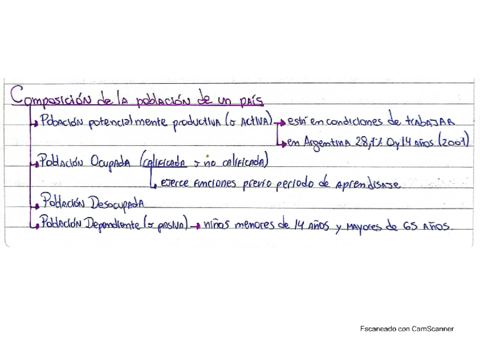 Composición de la población de un país
Población potencialmente productiva (o activa) → está en condiciones de trabajar
en Argentina 28,1% 0y14 años (2001)
Población Ocupada (calificada o no calificada)
ejerce funciones previo periodo de aprendisaje
Población Desocupada
Población Dependiente (o pasiva) → niños menores de 14 años y mayores de 65 años.
Escaneado con CamScanner